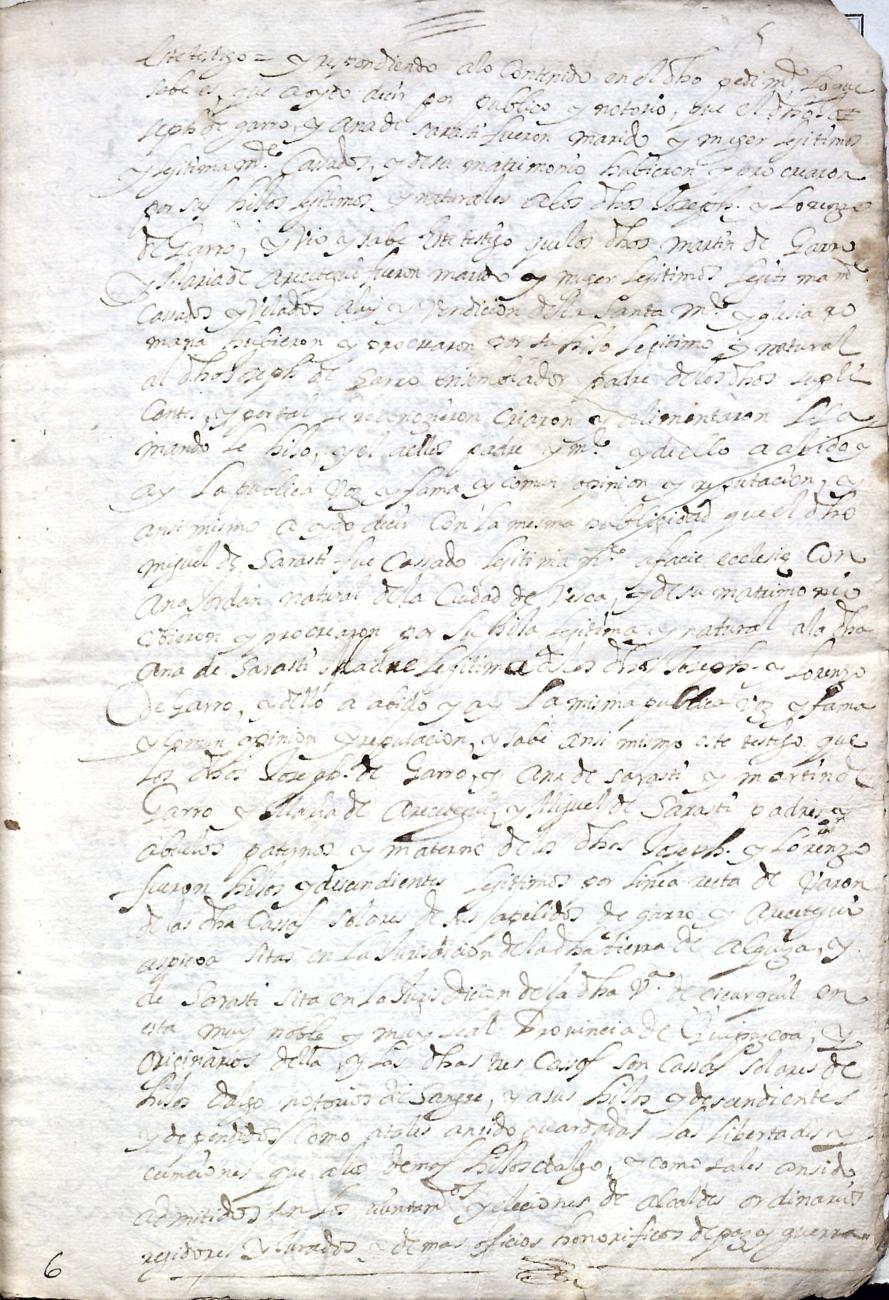 este testigo = y respondiendo a lo Contenido en el dho pedimto, lo que
sabe es, que a oydo decir por publico y notorio, que el dho Jo
seph de garro, y Ana de Sarasti fueron marido y muger legitimos
y legitimamte Cassados, y de su matrimonio hubieron y procrearon
por sus hijos legitimos y naturales a los dhos Joseph y Lorenzo
de Garro, y vio y sabe este testigo que los dhos martin de Garro
y Maria de Areitegui fueron marido y muger legitimos legitimamte
Casados y Velados a ley y Vendicion de la Santa me yglesia Ro
mana hubieron y procrearon por su hijo legitimo y natural
al dho Joseph de Garro padre de los dhos supli
Cantes, y por tal le reconocieron criaron y alimentaron lla
mando le hijo, y el a ellos padre y me y de ello a abido y
ay la publica Voz y fama y comun opinion y reputacion, y
ansi mismo a oydo decir con la mesma publicidad que el dho
miguel de Sarasti fue Cassado legitimamte a facie ecclesie Con
Ana Jordan natural de la Ciudad de y de su matrimonio
obieron y procrearon por su hija legitima y natural a la dha
Ana de Sarasti Madre legitima de los dhos Joseph y Lorenzo
de Garro, y dello a abido y ay la misma publica Voz y fama
y comun opinion y reputacion, y sabe ansi mismo este testigo que
los dhos Joseph de Garro, y Ana de Sarasti y martin de
Garro y Maria de Areitegui, y Miguel de Sarasti padres y
abuelos paternos y materno de los dhos Joseph y Lorenzo
fueron hijos y descendientes legitimos por linea recta de Varon
de las dha Cassas solares de sus apellidos de garro y Areitegui
sitas en la Jurisdicion de la dha tierra de y
de Sarasti sita en la Jurisdicion de la dha Va de cicurquil en
esta muy noble y muy leal Provincia de Guipuzcoa, y
originarios della, y las dhas tres Cassas son Cassas solares de
hijos dalgo notorios de Sangre, y a sus hijos y descendientes
y dependidos Como a tales an sido guardadas las libertades y
que a los demas hijos dalgo, y como tales an sido
admitidos en los aiuntamtos y eleciones de alcaldes ordinarios
regidores y Jurados y demas oficios honorificos de paz y guerra
6